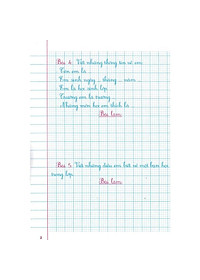 Bài 4. Viết những thông tin về em.
Tên em là
Em sinh ngày ... tháng ... năm ...
Em là học sinh lớp
Trường em là trường
Những môn học em thích là
Bài làm
Bài 5. Viết những điều em biết về một bạn học
cùng lớp.
Bài làm